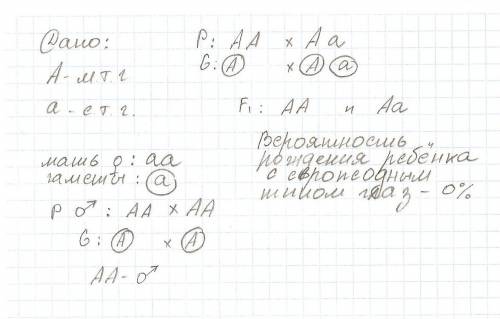 Дано:
А - м т. г
а - е т. г.
мать ♀: аа
гаметы: а
Р ♂: АА × АА
G: А × А
АА - ♂
Р: АА × Аа
G: А × А а
F₁: АА и Аа
Вероятность
рождения ребёнка
с европеодным
типом глаз - 0%